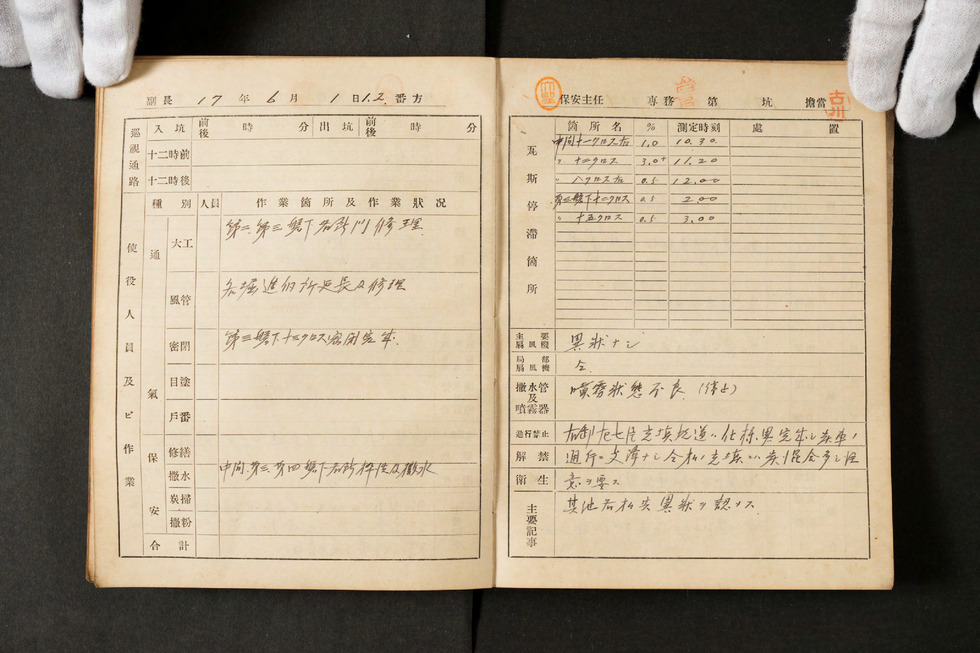 副長 17 年 6 月 1 日 1.2. 番方
巡視通路
入坑 前後 時 分 出坑 前後 時 分
十二時前
十二時後
使役人員及ビ作業
種別 人員 作業箇所及作業狀况
通氣保安
大工 第二、第三盤下各所門修理
風管 各掘進箇所延長及修理
密閉 第三盤下十二クロス密閉完成
目塗
戶番
修繕
撒水 中間、第三、第四盤下各所 撒水
炭掃
撒粉
合計
保安主任 專務 第 坑 擔當 古川
瓦斯停滯箇所
箇所名 % 測定時刻 處置
中間十一クロス左 1.0 10.30
〃 十二クロス 3.0+ 11.20
〃 八クロス左 0.5 12.00
第三盤下十二クロス 0.5 2.00
〃 十五クロス 0.5 3.00
主要扇風機 異狀ナシ
局部扇風機 仝
撒水管及噴霧器 噴霧狀態不良 (停止)
通行禁止
解禁 通行ニ支障ナシ
衛生 意ヲ要ス
主要記事 其他 異狀ヲ認メス